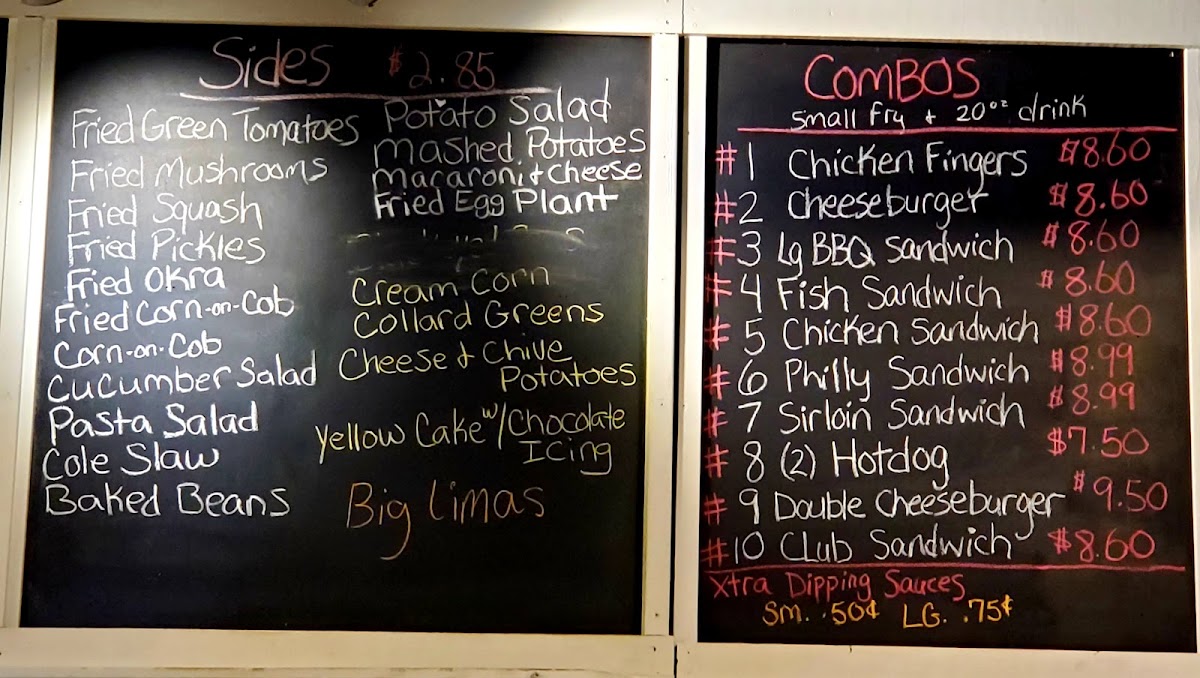 Sides $2.85
Fried Green Tomatoes
Fried Mushrooms
Fried Squash
Fried Pickles
Fried Okra
Fried Corn-on-Cob
Corn-on-Cob
Cucumber Salad
Pasta Salad
Cole Slaw
Baked Beans
Potato Salad
Mashed Potatoes
Macaroni & Cheese
Fried Egg Plant
Cream Corn
Collard Greens
Cheese & Chive
Potatoes
Yellow Cake w/Chocolate
Icing
Big Limas
COMBOS
small fry + 20oz drink
#1 Chicken Fingers $8.60
#2 Cheeseburger $8.60
#3 Lg BBQ Sandwich $8.60
#4 Fish Sandwich $8.60
#5 Chicken Sandwich $8.60
#6 Philly Sandwich $8.99
#7 Sirloin Sandwich $8.99
#8 (2) Hotdog $7.50
#9 Double Cheeseburger $9.50
#10 Club Sandwich $8.60
Xtra Dipping Sauces
Sm. .50¢ LG. .75¢